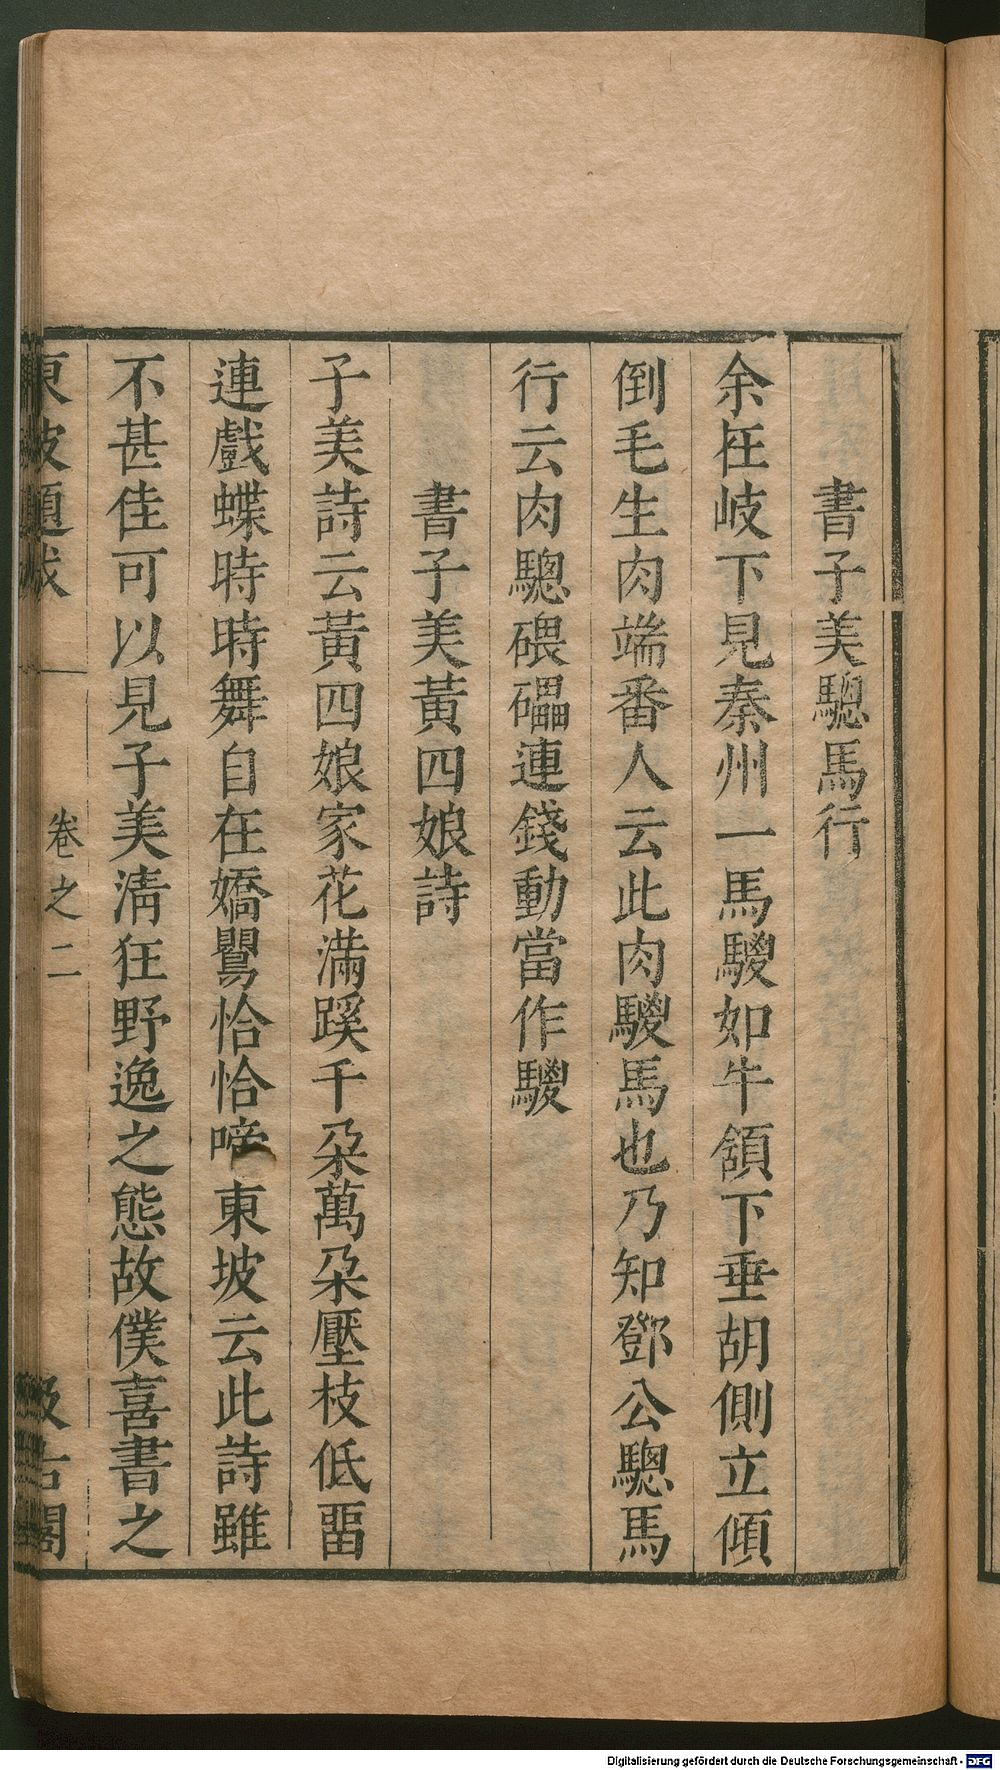 書子美驄馬行
余在岐下見秦州一馬騣如牛頷下垂胡側立傾
倒毛生肉端番人云此肉騣馬也乃知鄧公驄馬
行云肉驄碨礧連錢動當作騣
書子美黃四娘詩
子美詩云黃四娘家花滿蹊千朶萬朶壓枝低畱
連戲蝶時時舞自在嬌鸎恰恰啼東坡云此詩雖
不甚佳可以見子美清狂野逸之態故僕喜書之
東坡題跋 卷之二 汲古閣
Digitalisierung gefördert durch die Deutsche Forschungsgemeinschaft - DFG